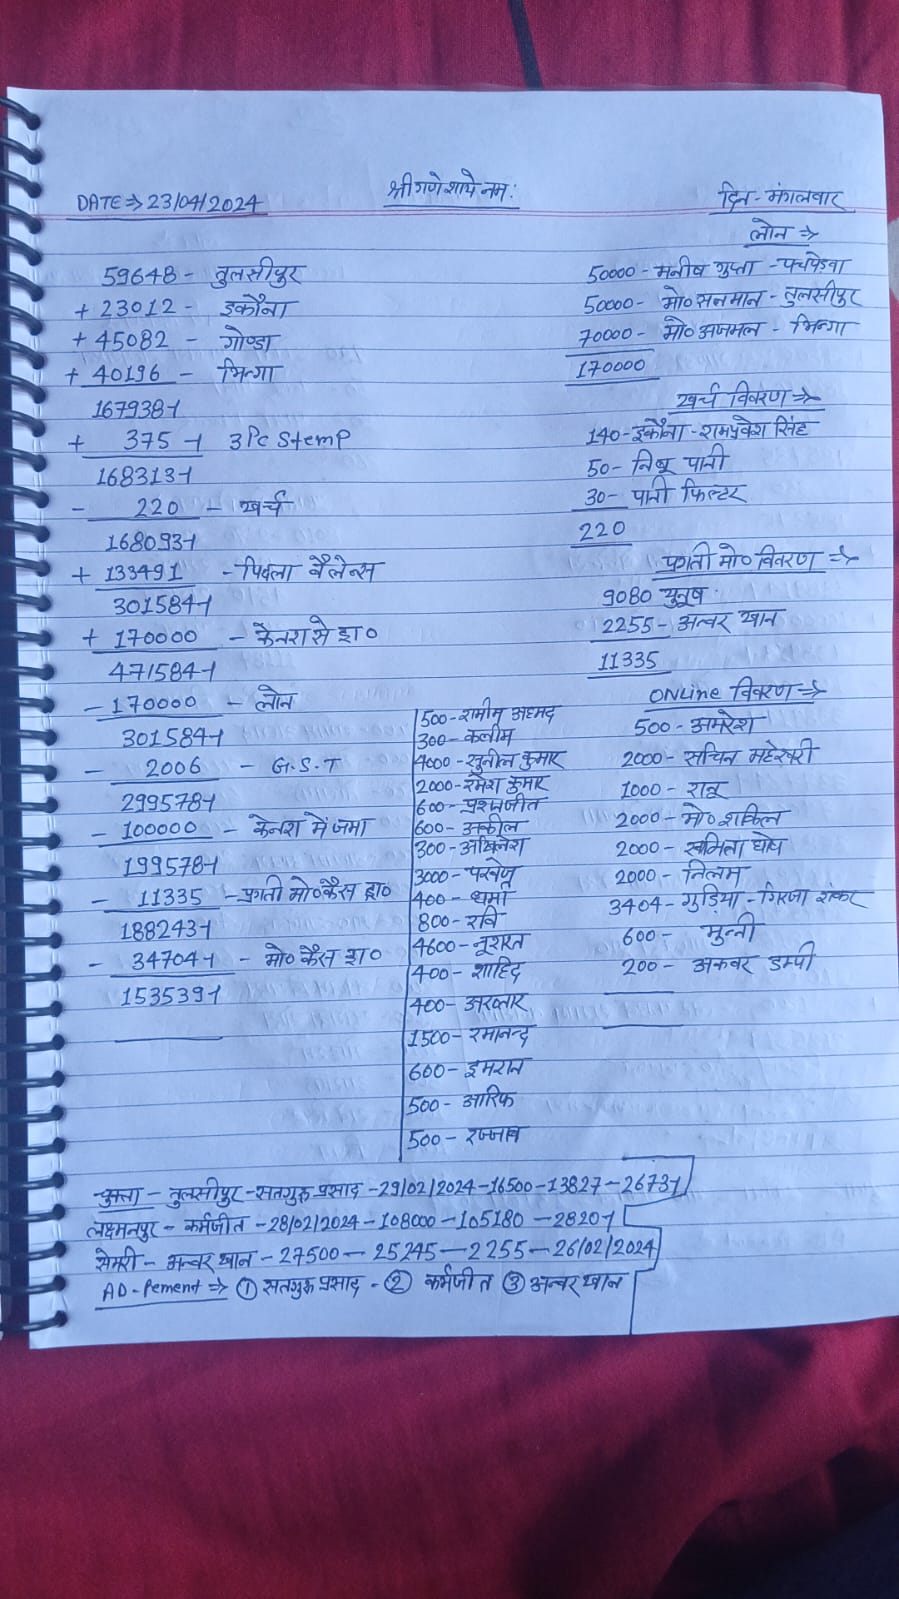 श्री गणेशाये नमः
DATE⇒23/04/2024
दिन-मंगलवार
59648 - तुलसीपुर
+ 23012 - इकौना
+ 45082 - गोण्डा
+ 40196 - भिन्गा
167938-/
+ 375-/ 3Pc Stemp
168313-/
- 220 - खर्च
168093-/
+ 133491 - पिछला बैलेन्स
301584-/
+ 170000 - केनरा से ड्रा०
471584-/
- 170000 - लोन
301584-/
- 2006 - G.S.T
299578-/
- 100000 - केनरा में जमा
199578-/
- 11335 - प्रगती मो० कैस ड्रा०
188243-/
- 34704-/ - मो० कैस ड्रा०
153539-/
लोन ⇒
50000 - मनीष गुप्ता - पचपेडवा
50000 - मो० सनमान - तुलसीपुर
70000 - मो० अजमल - भिन्गा
170000
खर्च विवरण ⇒
140 - इकौना - रामप्रवेश सिंह
50 - निबू पानी
30 - पानी फिल्टर
220
प्रगती मो० विवरण ⇒
9080 युनूष
2255 - अन्वर खान
11335
ONLine विवरण ⇒
500 - शमीम अहमद
300 - कलीम
4000 - सुनील कुमार
2000 - रमेश कुमार
600 - प्रश्नजीत
600 - अकील
300 - अखिलेश
3000 - परवेज
400 - धर्मा
800 - रवि
4600 - नूशरत
400 - शाहिद
400 - अख्तार
1500 - रमानन्द
600 - इमरान
500 - आरिफ
500 - रज्जाब
500 - अमरेश
2000 - सचिन महेश्वरी
1000 - राजू
2000 - मो० शकिल
2000 - समिता घोष
2000 - निलम
3404 - गुड़िया - गिरजा शंकर
600 - मुन्नी
200 - अकबर डम्पी
चुक्ता - तुलसीपुर - सतगुरु प्रसाद - 29/02/2024 - 16500 - 13827 - 2673-/
लक्ष्मनपुर - कर्मजीत - 28/02/2024 - 108000 - 105180 - 2820-/
सेमरी - अन्वर खान - 27500 - 25245 - 2255 - 26/02/2024
AD-Pement ⇒ ① सतगुरु प्रसाद - ② कर्मजीत ③ अन्वर खान